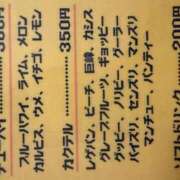 チューハイ・・・・300円
ブルーハワイ、ライム、メロン
カルピス、ウメ、イチゴ、レモン
カクテル・・・・・350円
レゲパン、ピーチ、巨峰、カシス
グレープフルーツ、キョッピー
グッピー、ノリピー、クーラー
パイズリ、センズリ、マンズリ
マンチュー、パンティー
ソフトドリンク・・・200